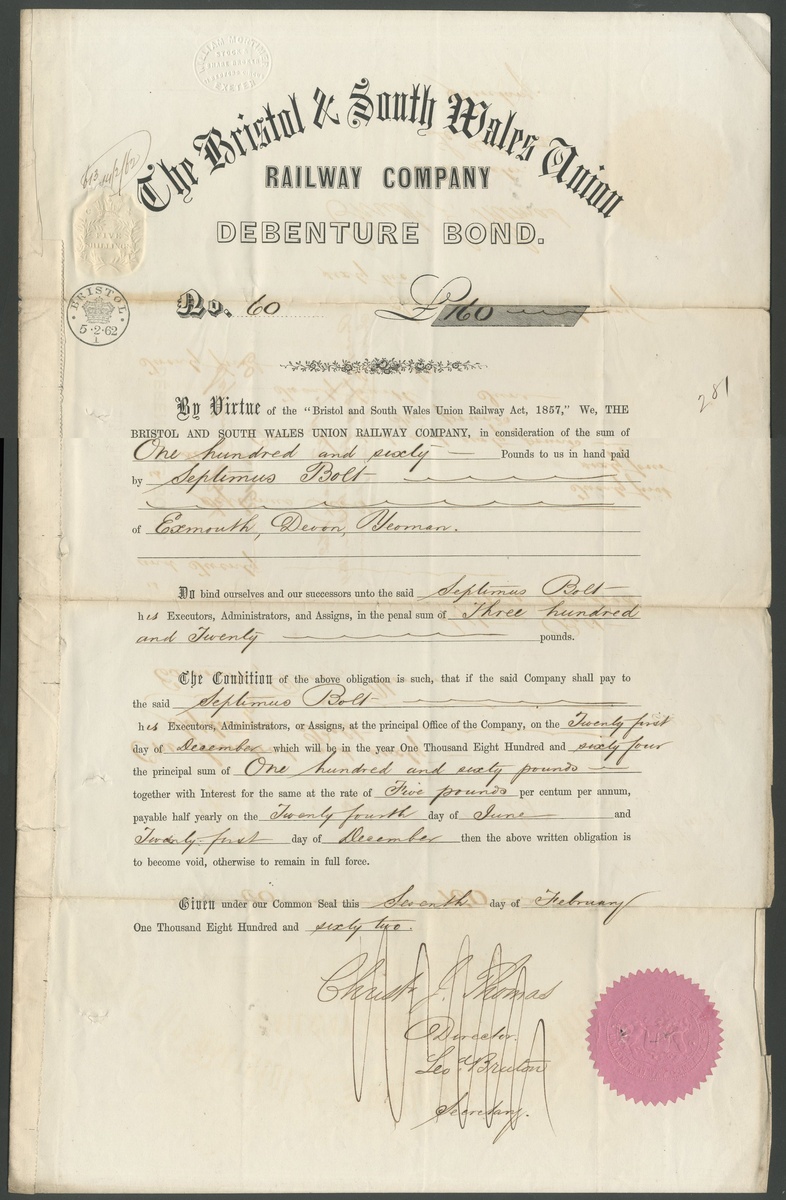 WILLIAM MORTIMER
STOCK &
SHARE BROKER
EXETER
The Bristol & South Wales Union
RAILWAY COMPANY
DEBENTURE BOND.
FIVE
SHILLINGS
BRISTOL
5·2·62
1
No. 60 £160
281
By Virtue of the "Bristol and South Wales Union Railway Act, 1857," We, THE
BRISTOL AND SOUTH WALES UNION RAILWAY COMPANY, in consideration of the sum of
One hundred and sixty Pounds to us in hand paid
by Septimus Bolt
of Exmouth, Devon, Yeoman.
Do bind ourselves and our successors unto the said Septimus Bolt
his Executors, Administrators, and Assigns, in the penal sum of Three hundred
and Twenty pounds.
The Condition of the above obligation is such, that if the said Company shall pay to
the said Septimus Bolt
his Executors, Administrators, or Assigns, at the principal Office of the Company, on the Twenty first
day of December which will be in the year One Thousand Eight Hundred and sixty four
the principal sum of One hundred and sixty pounds
together with Interest for the same at the rate of Five pounds per centum per annum,
payable half yearly on the Twenty fourth day of June and
Twenty-first day of December then the above written obligation is
to become void, otherwise to remain in full force.
Given under our Common Seal this Seventh day of February
One Thousand Eight Hundred and sixty two.
Christr J. Thomas
Director.
Leod. Bruton
Secretary.